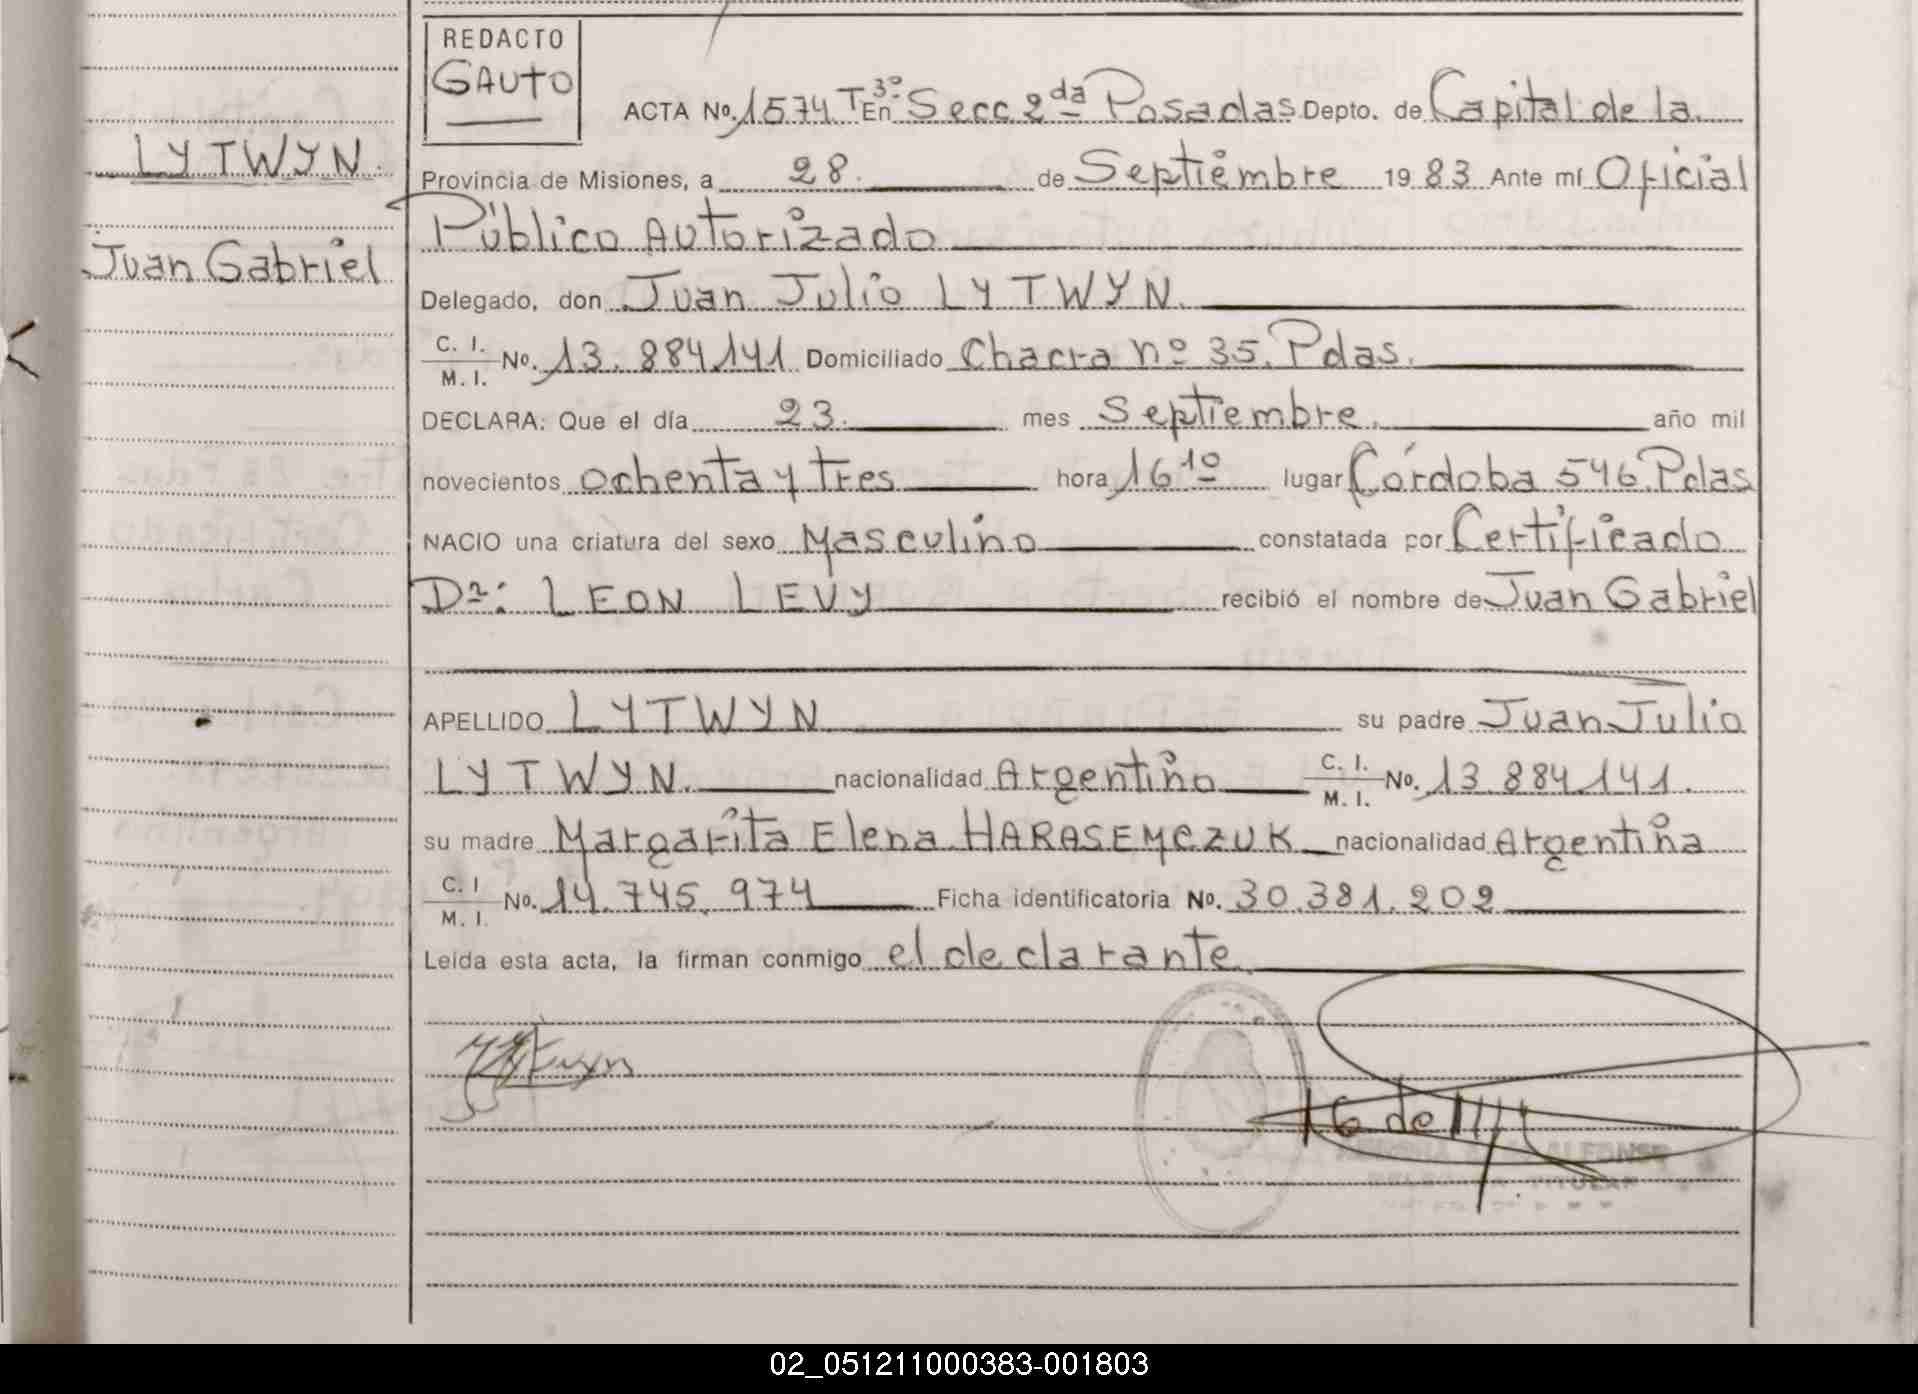 REDACTO
GAUTO
ACTA No. 1574 T 3º En Secc. 2da Posadas Depto. de Capital de la
LYTWYN.
Provincia de Misiones, a 28. de Septiembre 1983 Ante mí Oficial
Público Autorizado
Juan Gabriel
Delegado, don Juan Julio LYTWYN.
C. I.
M. I. No. 13.884.141 Domiciliado Chacra nº 35. Pdas.
DECLARA: Que el día 23. mes Septiembre. año mil
novecientos ochenta y tres hora 16 10 lugar Córdoba 546. Pdas
NACIO una criatura del sexo Masculino constatada por Certificado
Dr: LEON LEVY recibió el nombre de Juan Gabriel
APELLIDO LYTWYN. su padre Juan Julio
LYTWYN. nacionalidad Argentino C. I. M. I. No. 13.884.141.
su madre Margarita Elena HARASEMCZUK nacionalidad Argentina
C. I M. I. No. 14.745.974 Ficha identificatoria No. 30.381.202
Leída esta acta, la firman conmigo el declarante.
16 de
ALFONSO
TITULAR
02_051211000383-001803